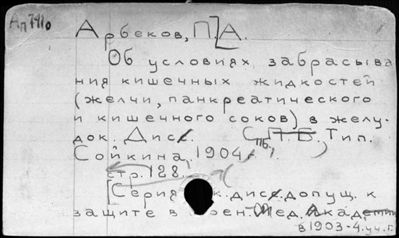 Ап 791о
Арбеков, П.]А.
Об условиях забрасыва
ния кишечных жидкостей
(желчи, панкреатического
и кишечного соков) в желу-
док. Дис. СПб. Тип.
Сойкина, 1904.
стр. 128.
[Серия дис. допущ. к
защите в Мед. Акад
в 1903-4 уч. г.